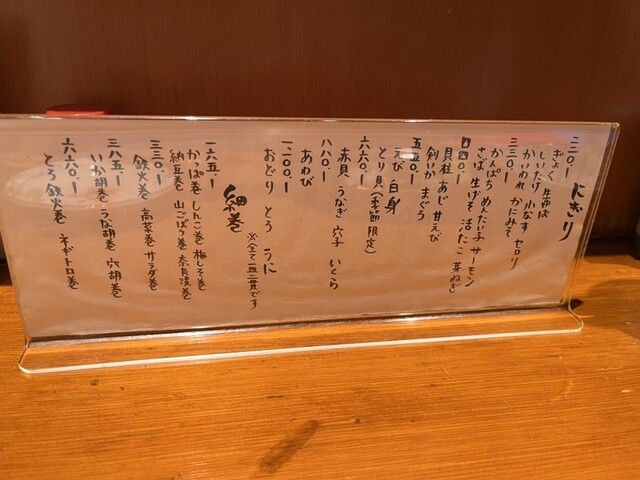 にぎり
二二〇、ー
ぎょく 生ゆば
しいたけ 小なす
かいわれ かにみそ
三三〇、ー セロリ
かんぱち めんたい子 サーモン
さば 生げそ 活たこ 芽ねぎ
四四〇、ー
貝柱 あじ 甘えび
剣いか まぐろ
五五〇、ー
えび 白身
とり貝(季節限定)
六六〇、ー
赤貝 うなぎ 穴子 いくら
八八〇、ー
あわび
一、二〇〇、ー
おどり とろ うに
※全て一皿二貫です
細巻
一六五、ー
かっぱ巻 しんこ巻 梅しそ巻
納豆巻 山ごぼう巻 奈良漬巻
三三〇、ー
鉄火巻 高菜巻 サラダ巻
三八五、ー
いか胡巻 うな胡巻 穴胡巻
六六〇、ー
とろ鉄火巻 ネギトロ巻